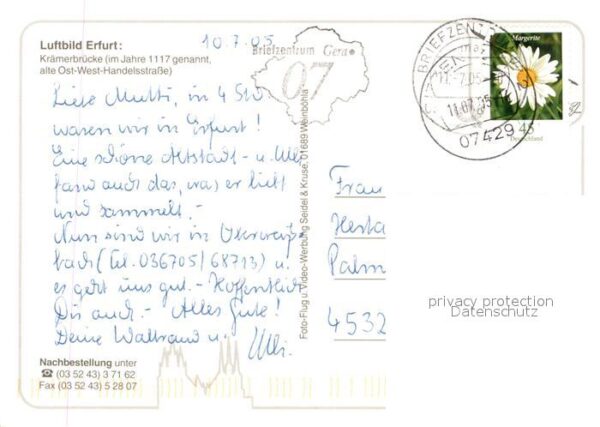 Luftbild Erfurt:
Krämerbrücke (im Jahre 1117 genannt,
alte Ost-West-Handelsstraße)
10.7.05
Briefzentrum Gera
07
BRIEFZENT
11.07.05
07429
Margerite
45
Deutschland
Liebe Mutti, in 4 Std
waren wir in Erfurt!
Eine schöne Altstadt - u. Uli
fand auch das, was er lieb
und sammelt. -
Nun sind wir in Oberweiß-
bach (Tel. 036705/68713) u.
es geht uns gut. - Hoffentlich
Dir auch. - Alles Gute!
Deine Waltraud u.
Uli.
Foto-Flug u. Video-Werbung Seidel & Kruse, 01689 Weinböhla
Frau
Herta
Palm
4532
privacy protection
Datenschutz
Nachbestellung unter
☎ (03 52 43) 3 71 62
Fax (03 52 43) 5 28 07